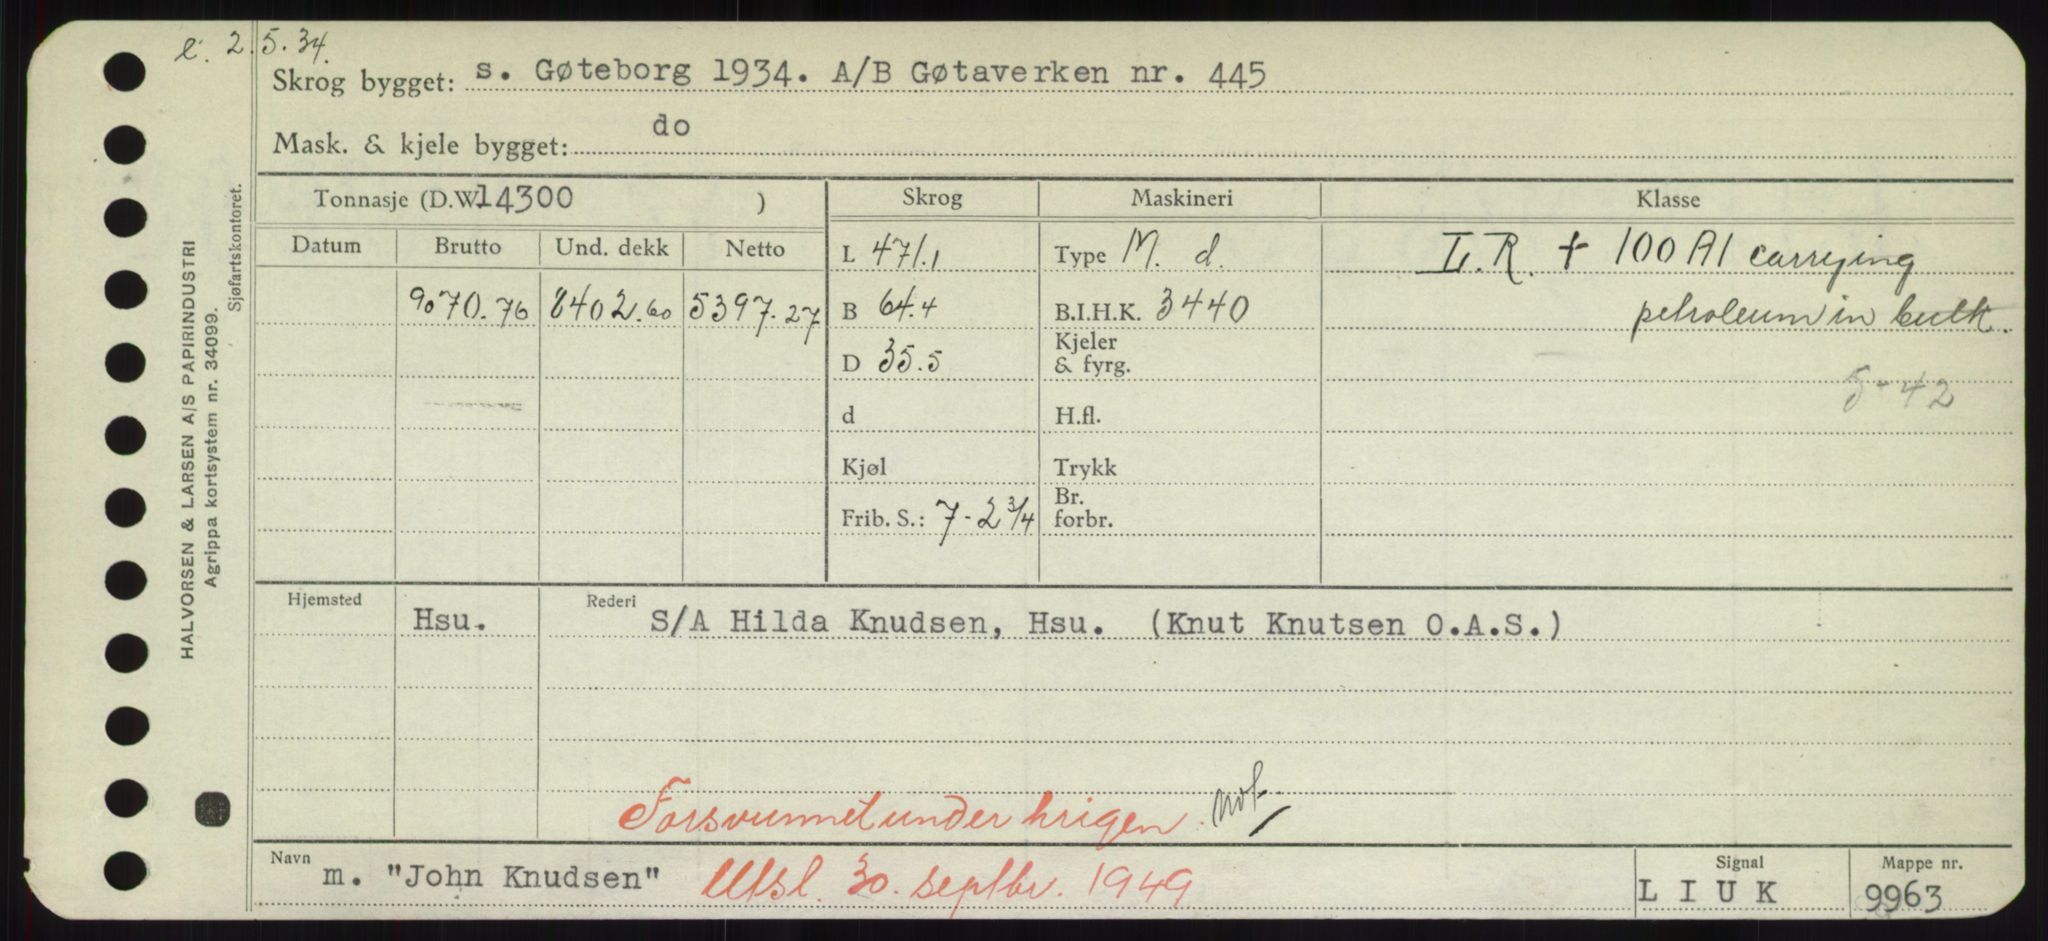 l. 2.5.34.
Skrog bygget: s. Gøteborg 1934. A/B Gøtaverken nr. 445
Mask. & kjele bygget: do
Tonnasje (D.W. 14300 ) Skrog Maskineri Klasse
Datum Brutto Und. dekk Netto L 471.1 Type M. d. L.R. + 100 A1 carrying
9070.76 8402.60 5397.27 B 64.4 B.I.H.K. 3440 petroleum in bulk.
D 35.5 Kjeler & fyrg.
5-42
d H.fl.
Kjøl Trykk
Frib. S.: 7-2 3/4 Br. forbr.
Hjemsted Hsu. Rederi S/A Hilda Knudsen, Hsu. (Knut Knutsen O.A.S.)
Forsvunnet under krigen. not.
Navn m. "John Knudsen" Utsl. 30. septbr. 1949 Signal L I U K Mappe nr. 9963
HALVORSEN & LARSEN A/S PAPIRINDUSTRI
Agrippa kortsystem nr. 34099.
Sjøfartskontoret.